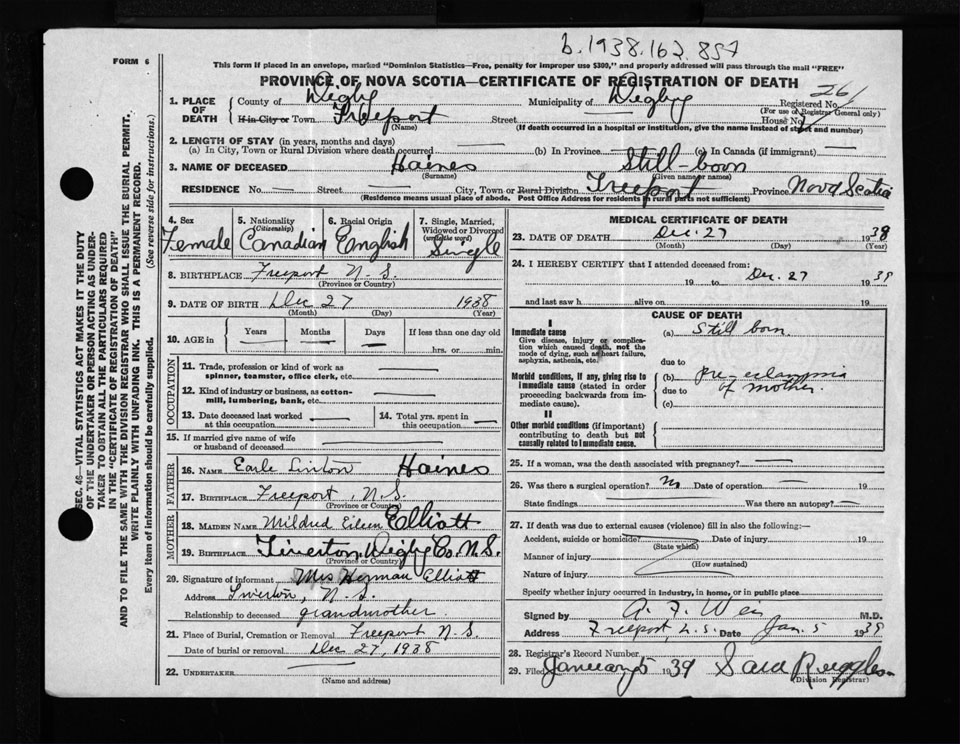 b.1938.162.857
FORM 6
This form if placed in an envelope, marked "Dominion Statistics—Free, penalty for improper use $300," and properly addressed will pass through the mail "FREE"
PROVINCE OF NOVA SCOTIA—CERTIFICATE OF REGISTRATION OF DEATH
1. PLACE OF DEATH County of Digby Municipality of Digby Registered No. 26
(For use of Registrar General only)
If in City or Town Freeport Street House No.
(Name) (If death occurred in a hospital or institution, give the name instead of street and number)
2. LENGTH OF STAY (in years, months and days)
(a) In City, Town or Rural Division where death occurred — (b) In Province — (c) In Canada (if immigrant) —
3. NAME OF DECEASED Haines Still-born
(Surname) (Given name or names)
RESIDENCE No. — Street — City, Town or Rural Division Freeport Province Nova Scotia
(Residence means usual place of abode. Post Office Address for residents in rural parts not sufficient)
4. Sex Female
5. Nationality (Citizenship) Canadian
6. Racial Origin English
7. Single, Married, Widowed or Divorced (write the word) Single
8. BIRTHPLACE Freeport N.S.
(Province or Country)
9. DATE OF BIRTH Dec 27 1938
(Month) (Day) (Year)
10. AGE in Years — Months — Days — If less than one day old
hrs. or min.
OCCUPATION
11. Trade, profession or kind of work as spinner, teamster, office clerk, etc. —
12. Kind of industry or business, as cotton-mill, lumbering, bank, etc. —
13. Date deceased last worked at this occupation —
14. Total yrs. spent in this occupation —
15. If married give name of wife or husband of deceased —
FATHER
16. NAME Earle Linton Haines
17. BIRTHPLACE Freeport, N.S.
(Province or Country)
MOTHER
18. MAIDEN NAME Mildred Eileen Elliott
19. BIRTHPLACE Tiverton, Digby Co. N.S.
(Province or Country)
20. Signature of informant Mrs Herman Elliott
Address Tiverton, N.S.
Relationship to deceased grandmother
21. Place of Burial, Cremation or Removal Freeport N.S.
Date of burial or removal Dec 27, 1938
22. UNDERTAKER —
(Name and address)
MEDICAL CERTIFICATE OF DEATH
23. DATE OF DEATH Dec. 27 1938
(Month) (Day) (Year)
24. I HEREBY CERTIFY that I attended deceased from:
19 to Dec. 27 19
and last saw h alive on 19
CAUSE OF DEATH
I
Immediate cause
Give disease, injury or complication which caused death, not the mode of dying, such as heart failure, asphyxia, asthenia, etc.
(a) Still born.
due to
Morbid conditions, if any, giving rise to immediate cause (stated in order proceeding backwards from immediate cause).
(b) pre-eclampsia
due to of mother.
(c)
II
Other morbid conditions (if important) contributing to death but not causally related to immediate cause.
25. If a woman, was the death associated with pregnancy? —
26. Was there a surgical operation? No Date of operation — 19
State findings — Was there an autopsy? —
27. If death was due to external causes (violence) fill in also the following:—
Accident, suicide or homicide? Date of injury 19
(State which)
Manner of injury
(How sustained)
Nature of injury
Specify whether injury occurred in industry, in home, or in public place
Signed by M.D.
Address Freeport, N.S. Date Jan. 5 1939
28. Registrar's Record Number
29. Filed January 5 1939 Sara Ruggles
(Division Registrar)
SEC. 46—VITAL STATISTICS ACT MAKES IT THE DUTY
OF THE UNDERTAKER OR PERSON ACTING AS UNDERTAKER TO OBTAIN ALL THE PARTICULARS REQUIRED
IN THE "CERTIFICATE OF REGISTRATION OF DEATH"
AND TO FILE THE SAME WITH THE DIVISION REGISTRAR WHO SHALL ISSUE THE BURIAL PERMIT.
WRITE PLAINLY WITH UNFADING INK. THIS IS A PERMANENT RECORD.
Every item of information should be carefully supplied. (See reverse side for instructions.)